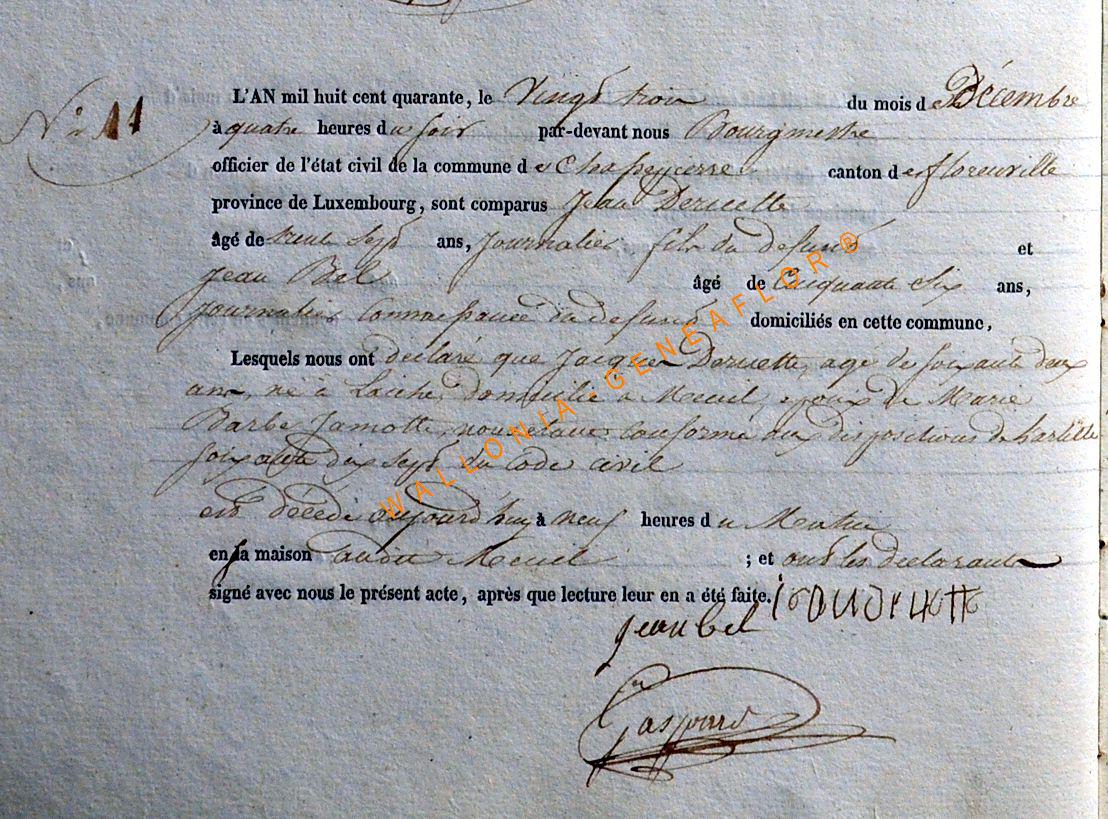 N° 11
L'AN mil huit cent quarante, le Vingt trois du mois de Décembre
à quatre heures du soir par-devant nous Bourgmestre
officier de l'état civil de la commune de Chassepierre canton de florenville
province de Luxembourg, sont comparus Jean
âgé de trente Sept ans, Journalier fils du defunt et
Jean âgé de Cinquante Six ans,
Journalier Connaissance du defunt domiciliés en cette commune,
Lesquels nous ont déclaré que Jacques agé de soixante deux
ans, né à domicilié à époux de Marie
Barbe Jamotte, conforme aux dispositions de
soixante dix sept du Code civil
est décédé aujourd'huy à neuf heures du Matin
en sa maison audit ; et ont les declarants
signé avec nous le présent acte, après que lecture leur en a été faite.
Jean bel
Gaspard
WALLONIA-GENEAFLOR®